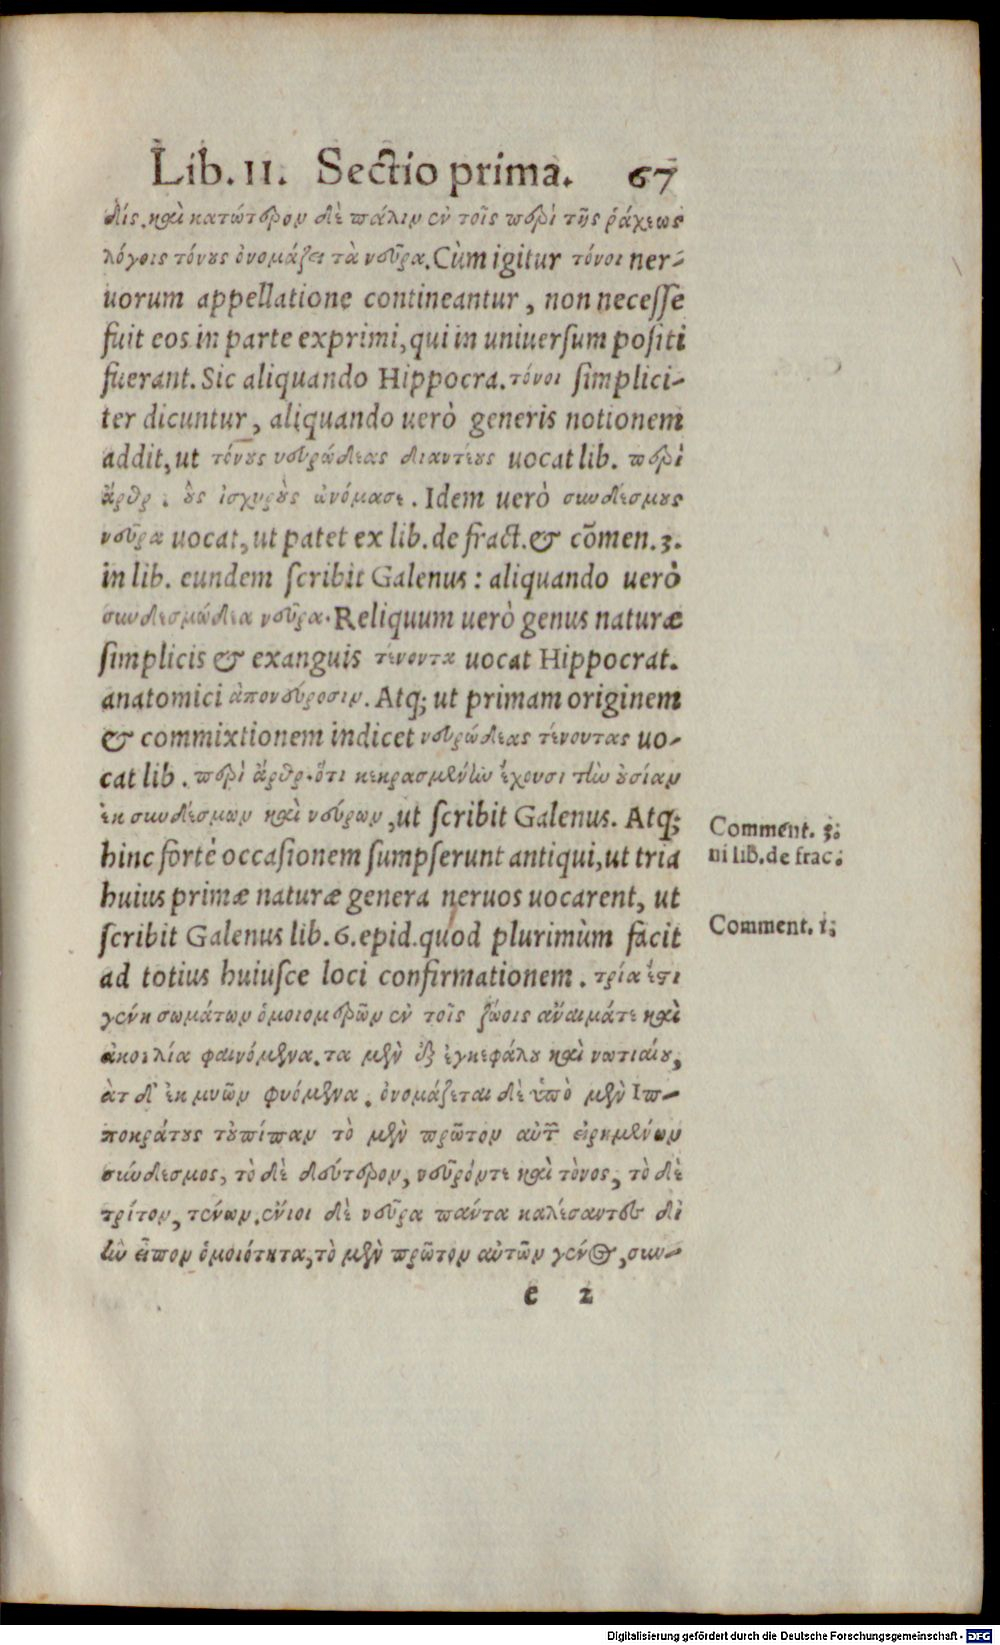 Lib. II. Sectio prima. 67
δίς. καὶ κατώτερον δὲ πάλιν ἐν τοῖς περὶ τῆς ῥάχεως
λόγοις τόνους ὀνομάζει τὰ νεῦρα. Cùm igitur τόνοι ner-
uorum appellatione contineantur, non necesse
fuit eos in parte exprimi, qui in uniuersum positi
fuerant. Sic aliquando Hippocra. τόνοι simplici-
ter dicuntur, aliquando uerò generis notionem
addit, ut τόνους νευρώδεας διαντέους uocat lib. περὶ
ἄρθρ. οὓς ἰσχυροὺς ὠνόμασε. Idem uerò συνδέσμους
νεῦρα uocat, ut patet ex lib. de fract. & cōmen. 3.
in lib. eundem scribit Galenus: aliquando uerò
συνδεσμώδεα νεῦρα. Reliquum uerò genus naturæ
simplicis & exanguis τένοντα uocat Hippocrat.
anatomici ἀπονεύροσιν. Atq; ut primam originem
& commixtionem indicet νευρώδεας τένοντας uo-
cat lib. περὶ ἄρθρ. ὅτι κεκρασμένην ἔχουσι τὴν οὐσίαν
ἐκ συνδέσμων καὶ νεύρων, ut scribit Galenus. Atq;
hinc fortè occasionem sumpserunt antiqui, ut tria
huius primæ naturæ genera neruos uocarent, ut
scribit Galenus lib. 6. epid. quod plurimùm facit
ad totius huiusce loci confirmationem. τρία ἐστι
γένη σωμάτων ὁμοιομερῶν ἐν τοῖς ζώοις ἄναιμάτε καὶ
ἀκοιλία φαινόμενα. τα μὲν ἐξ ἐγκεφάλου καὶ νωτιαίου,
ἀτ δ' ἐκ μυῶν φυόμενα. ὀνομάζεται δὲ ὑπὸ μὲν Ιπ-
ποκράτους τουπίπαν τὸ μὲν πρῶτον αὐτῶν εἰρημένων
σύνδεσμος, τὸ δὲ δεύτερον, νεῦρόντε καὶ τὸνος, τὸ δὲ
τρίτον, τένων. ἔνιοι δὲ νεῦρα παντα καλέσαντες δι
ἣν εἶπον ὁμοιότητα, τὸ μὲν πρῶτον αὐτῶν γένος, συν-
e 2
Comment. 3.
ni lib. de frac.
Comment. 1.
Digitalisierung gefördert durch die Deutsche Forschungsgemeinschaft - DFG